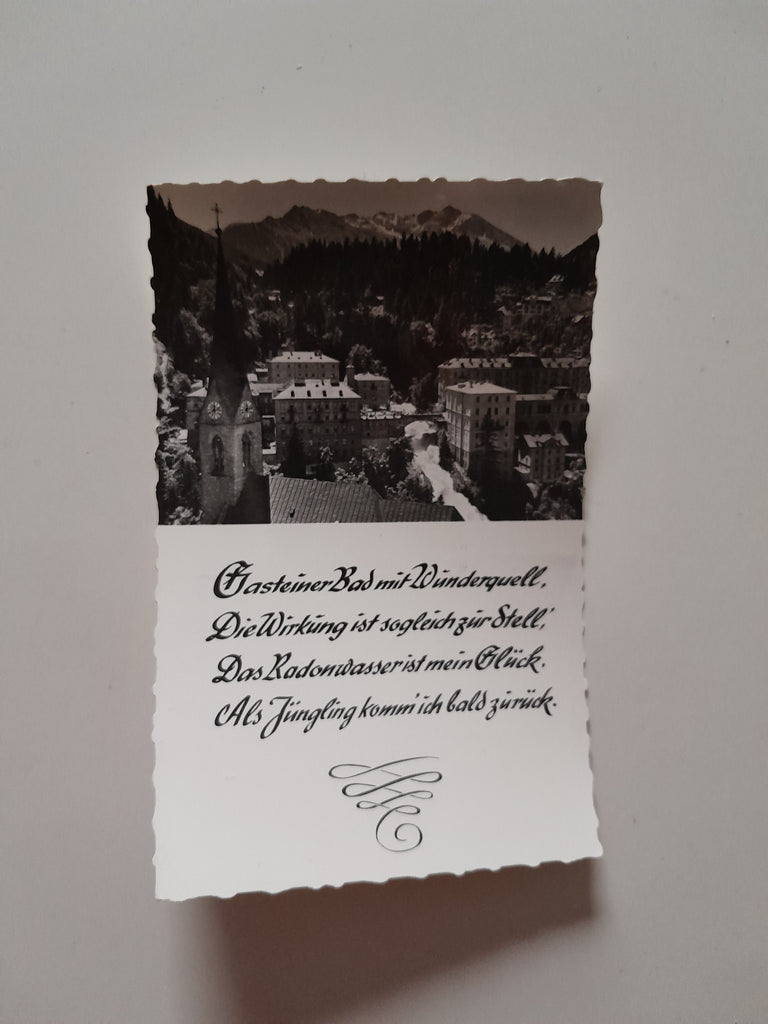 Gasteiner Bad mit Wunderquell,
Die Wirkung ist sogleich zur Stell,'
Das Radonwasser ist mein Glück.
Als Jüngling komm' ich bald zurück.